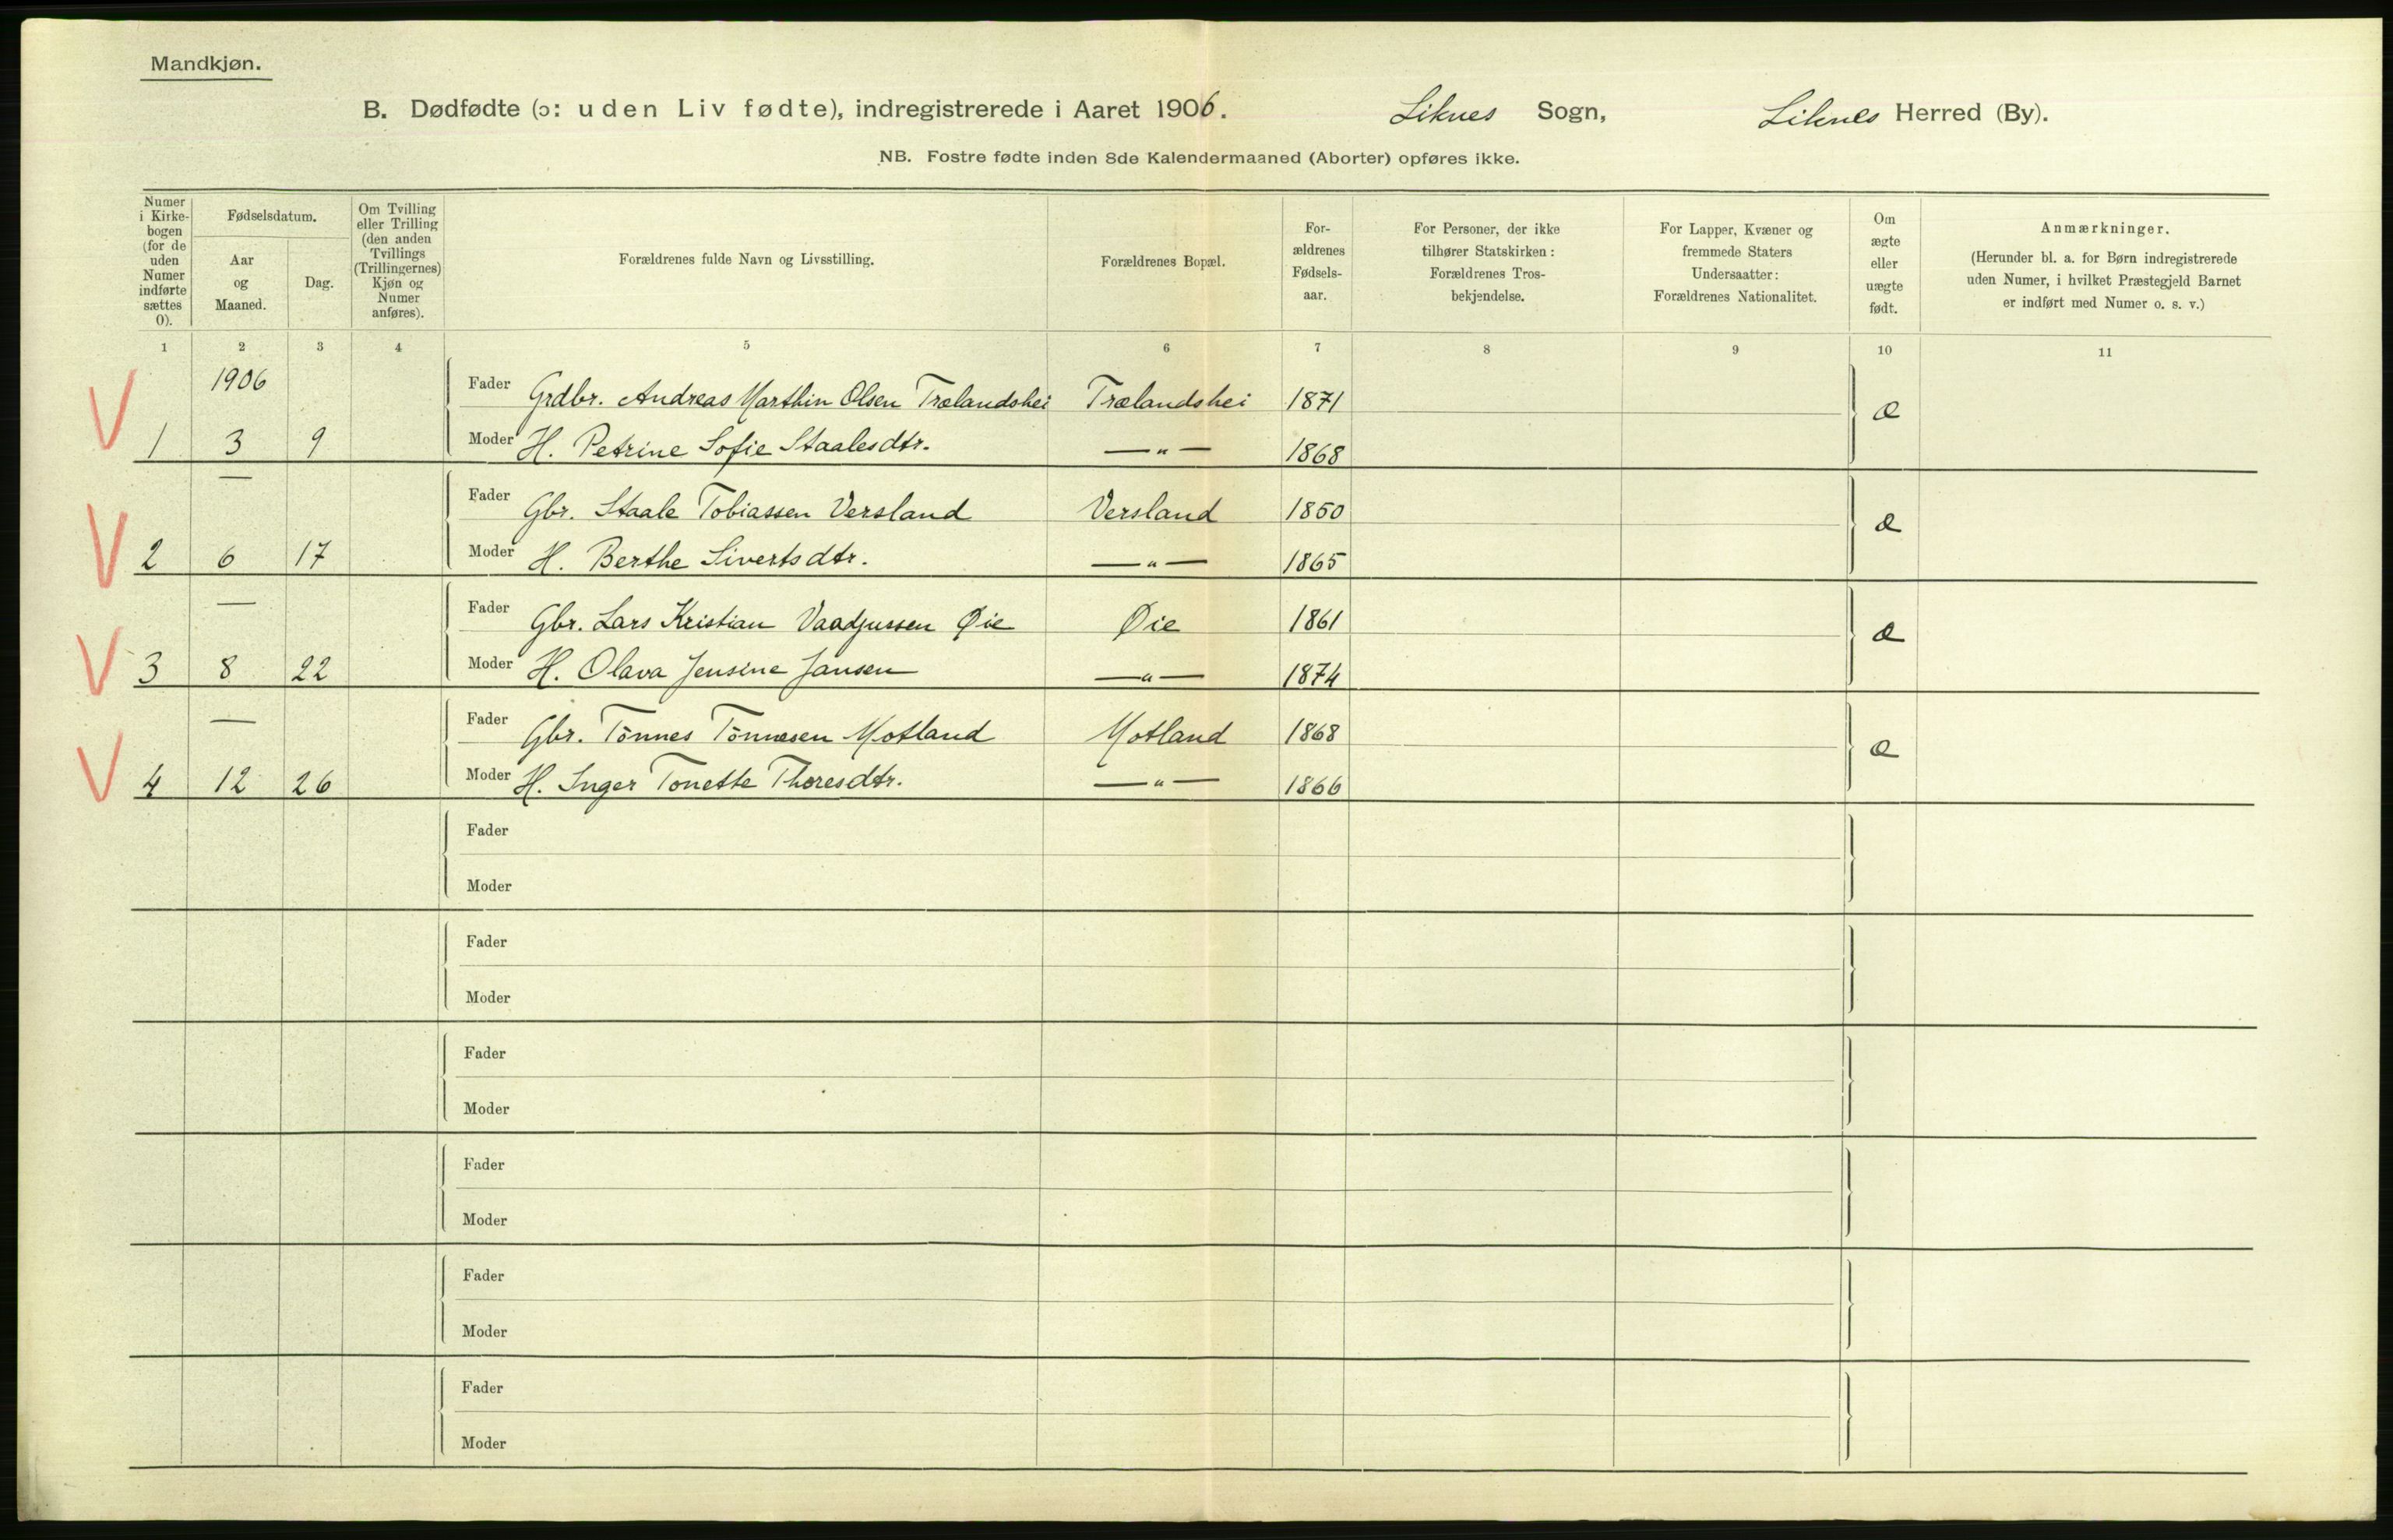 Mandkjøn.
B. Dødfødte (ɔ: uden Liv fødte), indregistrerede i Aaret 1906. Liknes Sogn, Liknes Herred (By).
NB. Fostre fødte inden 8de Kalendermaaned (Aborter) opføres ikke.
Numer i Kirkebogen (for de uden Numer indførte sættes 0).
Fødselsdatum.
Aar og Maaned.
Dag.
Om Tvilling eller Trilling (den anden Tvillings (Trillingernes) Kjøn og Numer anføres).
Forældrenes fulde Navn og Livsstilling.
Forældrenes Bopæl.
For-ældrenes Fødsels-aar.
For Personer, der ikke tilhører Statskirken: Forældrenes Tros-bekjendelse.
For Lapper, Kvæner og fremmede Staters Undersaatter: Forældrenes Nationalitet.
Om ægte eller uægte født.
Anmærkninger.
(Herunder bl. a. for Børn indregistrerede uden Numer, i hvilket Præstegjeld Barnet er indført med Numer o. s. v.)
1 2 3 4 5 6 7 8 9 10 11
1906 Fader Grdbr. Andreas Marthin Olsen Trælandshei Trælandshei 1871 æ
V 1 3 9 Moder H. Petrine Sofie Staalesdtr. —"— 1868
— Fader Gbr. Staale Tobiassen Versland Versland 1850 æ
V 2 6 17 Moder H. Berthe Sivertsdtr. —"— 1865
— Fader Gbr. Lars Kristian Vaadjussen Øie Øie 1861 æ
V 3 8 22 Moder H. Olava Jensine Jansen —"— 1874
— Fader Gbr. Tönnes Tönnesen Motland Motland 1868 æ
V 4 12 26 Moder H. Inger Tonette Thoresdtr. —"— 1866
Fader
Moder
Fader
Moder
Fader
Moder
Fader
Moder
Fader
Moder
Fader
Moder